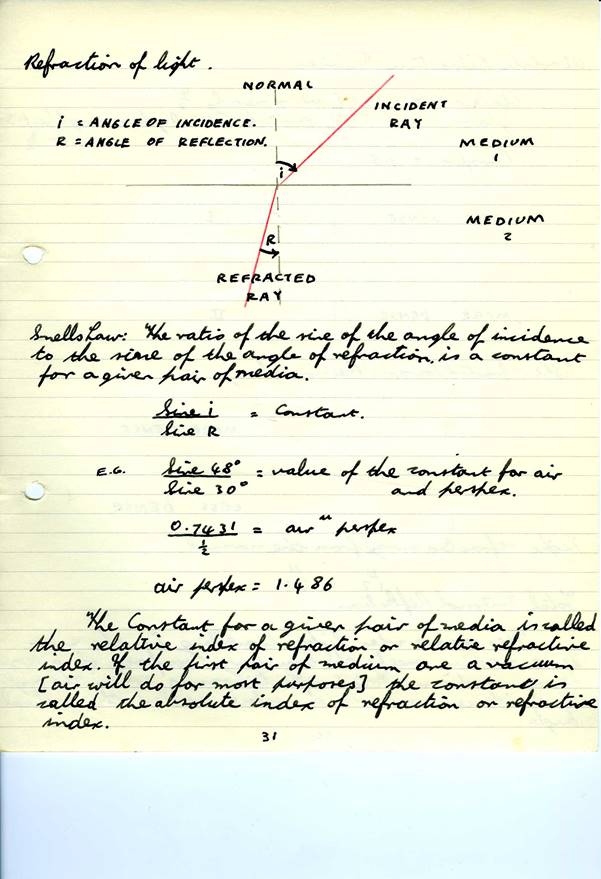 Refraction of light.
NORMAL
INCIDENT
RAY
i = ANGLE OF INCIDENCE.
R = ANGLE OF REFLECTION.
MEDIUM
1
i
MEDIUM
2
R
REFRACTED
RAY
Snells Law: The ratio of the sine of the angle of incidence
to the sine of the angle of refraction, is a constant
for a given pair of media.
Sine i = Constant.
Sine R
E.G. Sine 48° = value of the constant for air
Sine 30° and perspex.
0.7431 = air " perspex
½
air perspex = 1.486
The Constant for a given pair of media is called
the relative index of refraction or relative refractive
index. If the first pair of medium are a vacuum
[air will do for most purposes] the constant is
called the absolute index of refraction or refractive
index.
31